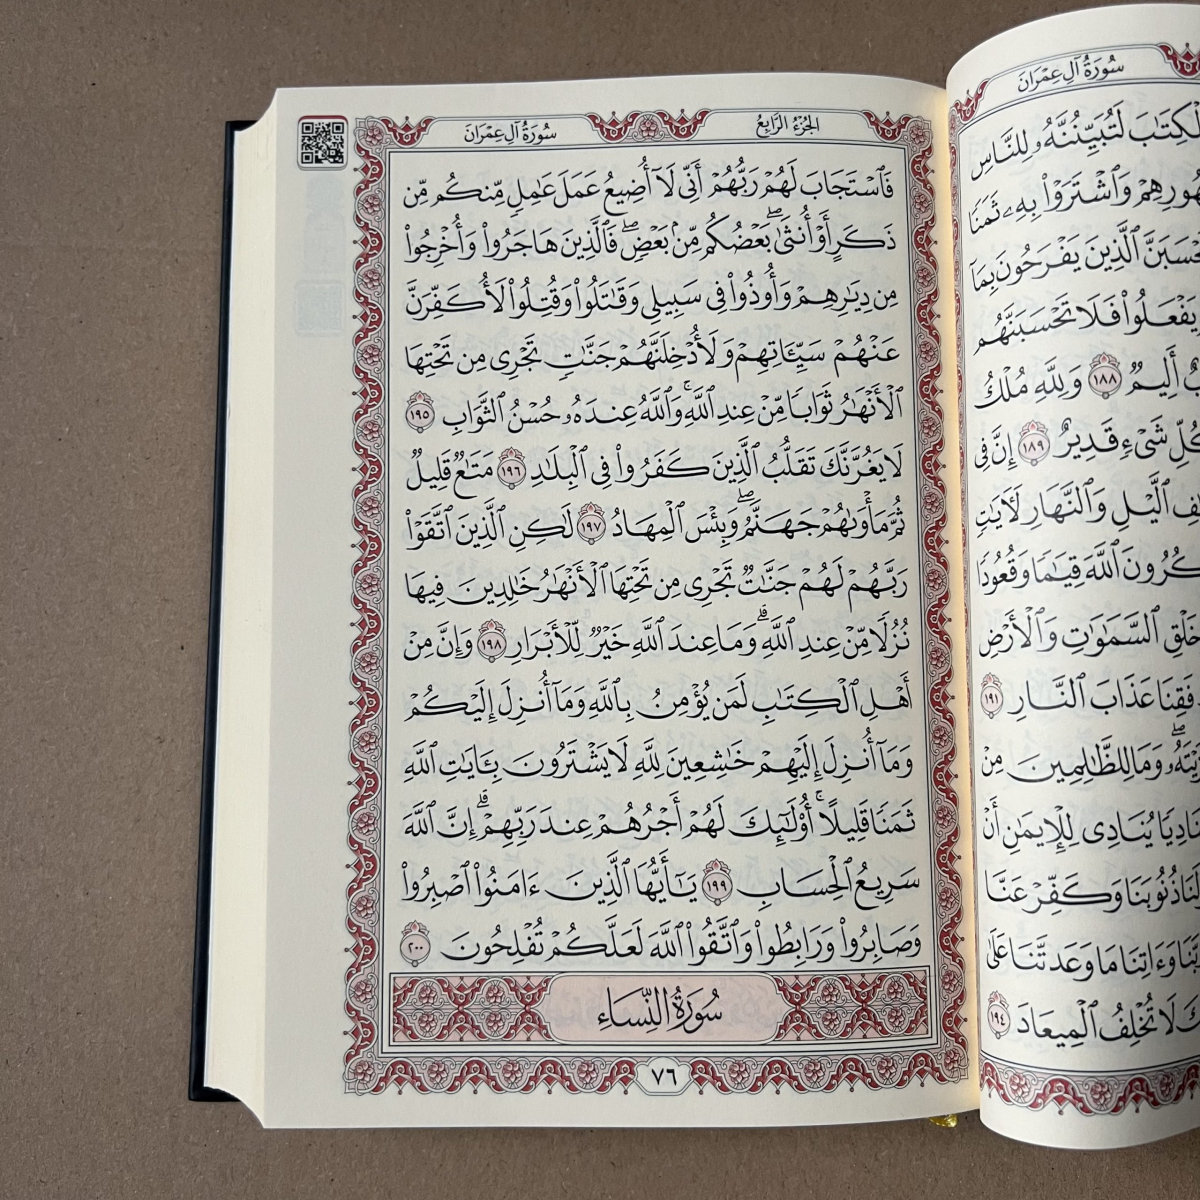 سُورَةُ آلِ عِمْرَانَ
لِلْكِتَٰبَ لَتُبَيِّنُنَّهُۥ لِلنَّاسِ
وَٱشْتَرَوْا۟ بِهِۦ ثَمَنًا
ٱلَّذِينَ يَفْرَحُونَ بِمَآ
يَفْعَلُوا۟ فَلَا تَحْسَبَنَّهُم
أَلِيمٌ ١٨٨ وَلِلَّهِ مُلْكُ
شَىْءٍ قَدِيرٌ ١٨٩ إِنَّ فِى
ٱلَّيْلِ وَٱلنَّهَارِ لَـَٔايَٰتٍ
ٱللَّهَ قِيَٰمًا وَقُعُودًا
ٱلسَّمَٰوَٰتِ وَٱلْأَرْضِ
فَقِنَا عَذَابَ ٱلنَّارِ ١٩١
وَمَا لِلظَّٰلِمِينَ مِنْ
يُنَادِى لِلْإِيمَٰنِ أَنْ
ذُنُوبَنَا وَكَفِّرْ عَنَّا
وَءَاتِنَا مَا وَعَدتَّنَا عَلَىٰ
لَا تُخْلِفُ ٱلْمِيعَادَ ١٩٤
الجُزْءُ الرَّابِعُ
سُورَةُ آلِ عِمْرَانَ
فَٱسْتَجَابَ لَهُمْ رَبُّهُمْ أَنِّى لَآ أُضِيعُ عَمَلَ عَٰمِلٍ مِّنكُم مِّن
ذَكَرٍ أَوْ أُنثَىٰۖ بَعْضُكُم مِّنۢ بَعْضٍۖ فَٱلَّذِينَ هَاجَرُوا۟ وَأُخْرِجُوا۟
مِن دِيَٰرِهِمْ وَأُوذُوا۟ فِى سَبِيلِى وَقَٰتَلُوا۟ وَقُتِلُوا۟ لَأُكَفِّرَنَّ
عَنْهُمْ سَيِّـَٔاتِهِمْ وَلَأُدْخِلَنَّهُمْ جَنَّٰتٍ تَجْرِى مِن تَحْتِهَا
ٱلْأَنْهَٰرُ ثَوَابًا مِّنْ عِندِ ٱللَّهِۚ وَٱللَّهُ عِندَهُۥ حُسْنُ ٱلثَّوَابِ ١٩٥
لَا يَغُرَّنَّكَ تَقَلُّبُ ٱلَّذِينَ كَفَرُوا۟ فِى ٱلْبِلَٰدِ ١٩٦ مَتَٰعٌ قَلِيلٌ
ثُمَّ مَأْوَىٰهُمْ جَهَنَّمُۖ وَبِئْسَ ٱلْمِهَادُ ١٩٧ لَٰكِنِ ٱلَّذِينَ ٱتَّقَوْا۟
رَبَّهُمْ لَهُمْ جَنَّٰتٌ تَجْرِى مِن تَحْتِهَا ٱلْأَنْهَٰرُ خَٰلِدِينَ فِيهَا
نُزُلًا مِّنْ عِندِ ٱللَّهِۗ وَمَا عِندَ ٱللَّهِ خَيْرٌ لِّلْأَبْرَارِ ١٩٨ وَإِنَّ مِنْ
أَهْلِ ٱلْكِتَٰبِ لَمَن يُؤْمِنُ بِٱللَّهِ وَمَآ أُنزِلَ إِلَيْكُمْ
وَمَآ أُنزِلَ إِلَيْهِمْ خَٰشِعِينَ لِلَّهِ لَا يَشْتَرُونَ بِـَٔايَٰتِ ٱللَّهِ
ثَمَنًا قَلِيلًاۚ أُو۟لَٰٓئِكَ لَهُمْ أَجْرُهُمْ عِندَ رَبِّهِمْۗ إِنَّ ٱللَّهَ
سَرِيعُ ٱلْحِسَابِ ١٩٩ يَٰٓأَيُّهَا ٱلَّذِينَ ءَامَنُوا۟ ٱصْبِرُوا۟
وَصَابِرُوا۟ وَرَابِطُوا۟ وَٱتَّقُوا۟ ٱللَّهَ لَعَلَّكُمْ تُفْلِحُونَ ٢٠٠
سُورَةُ النِّسَاءِ
٧٦